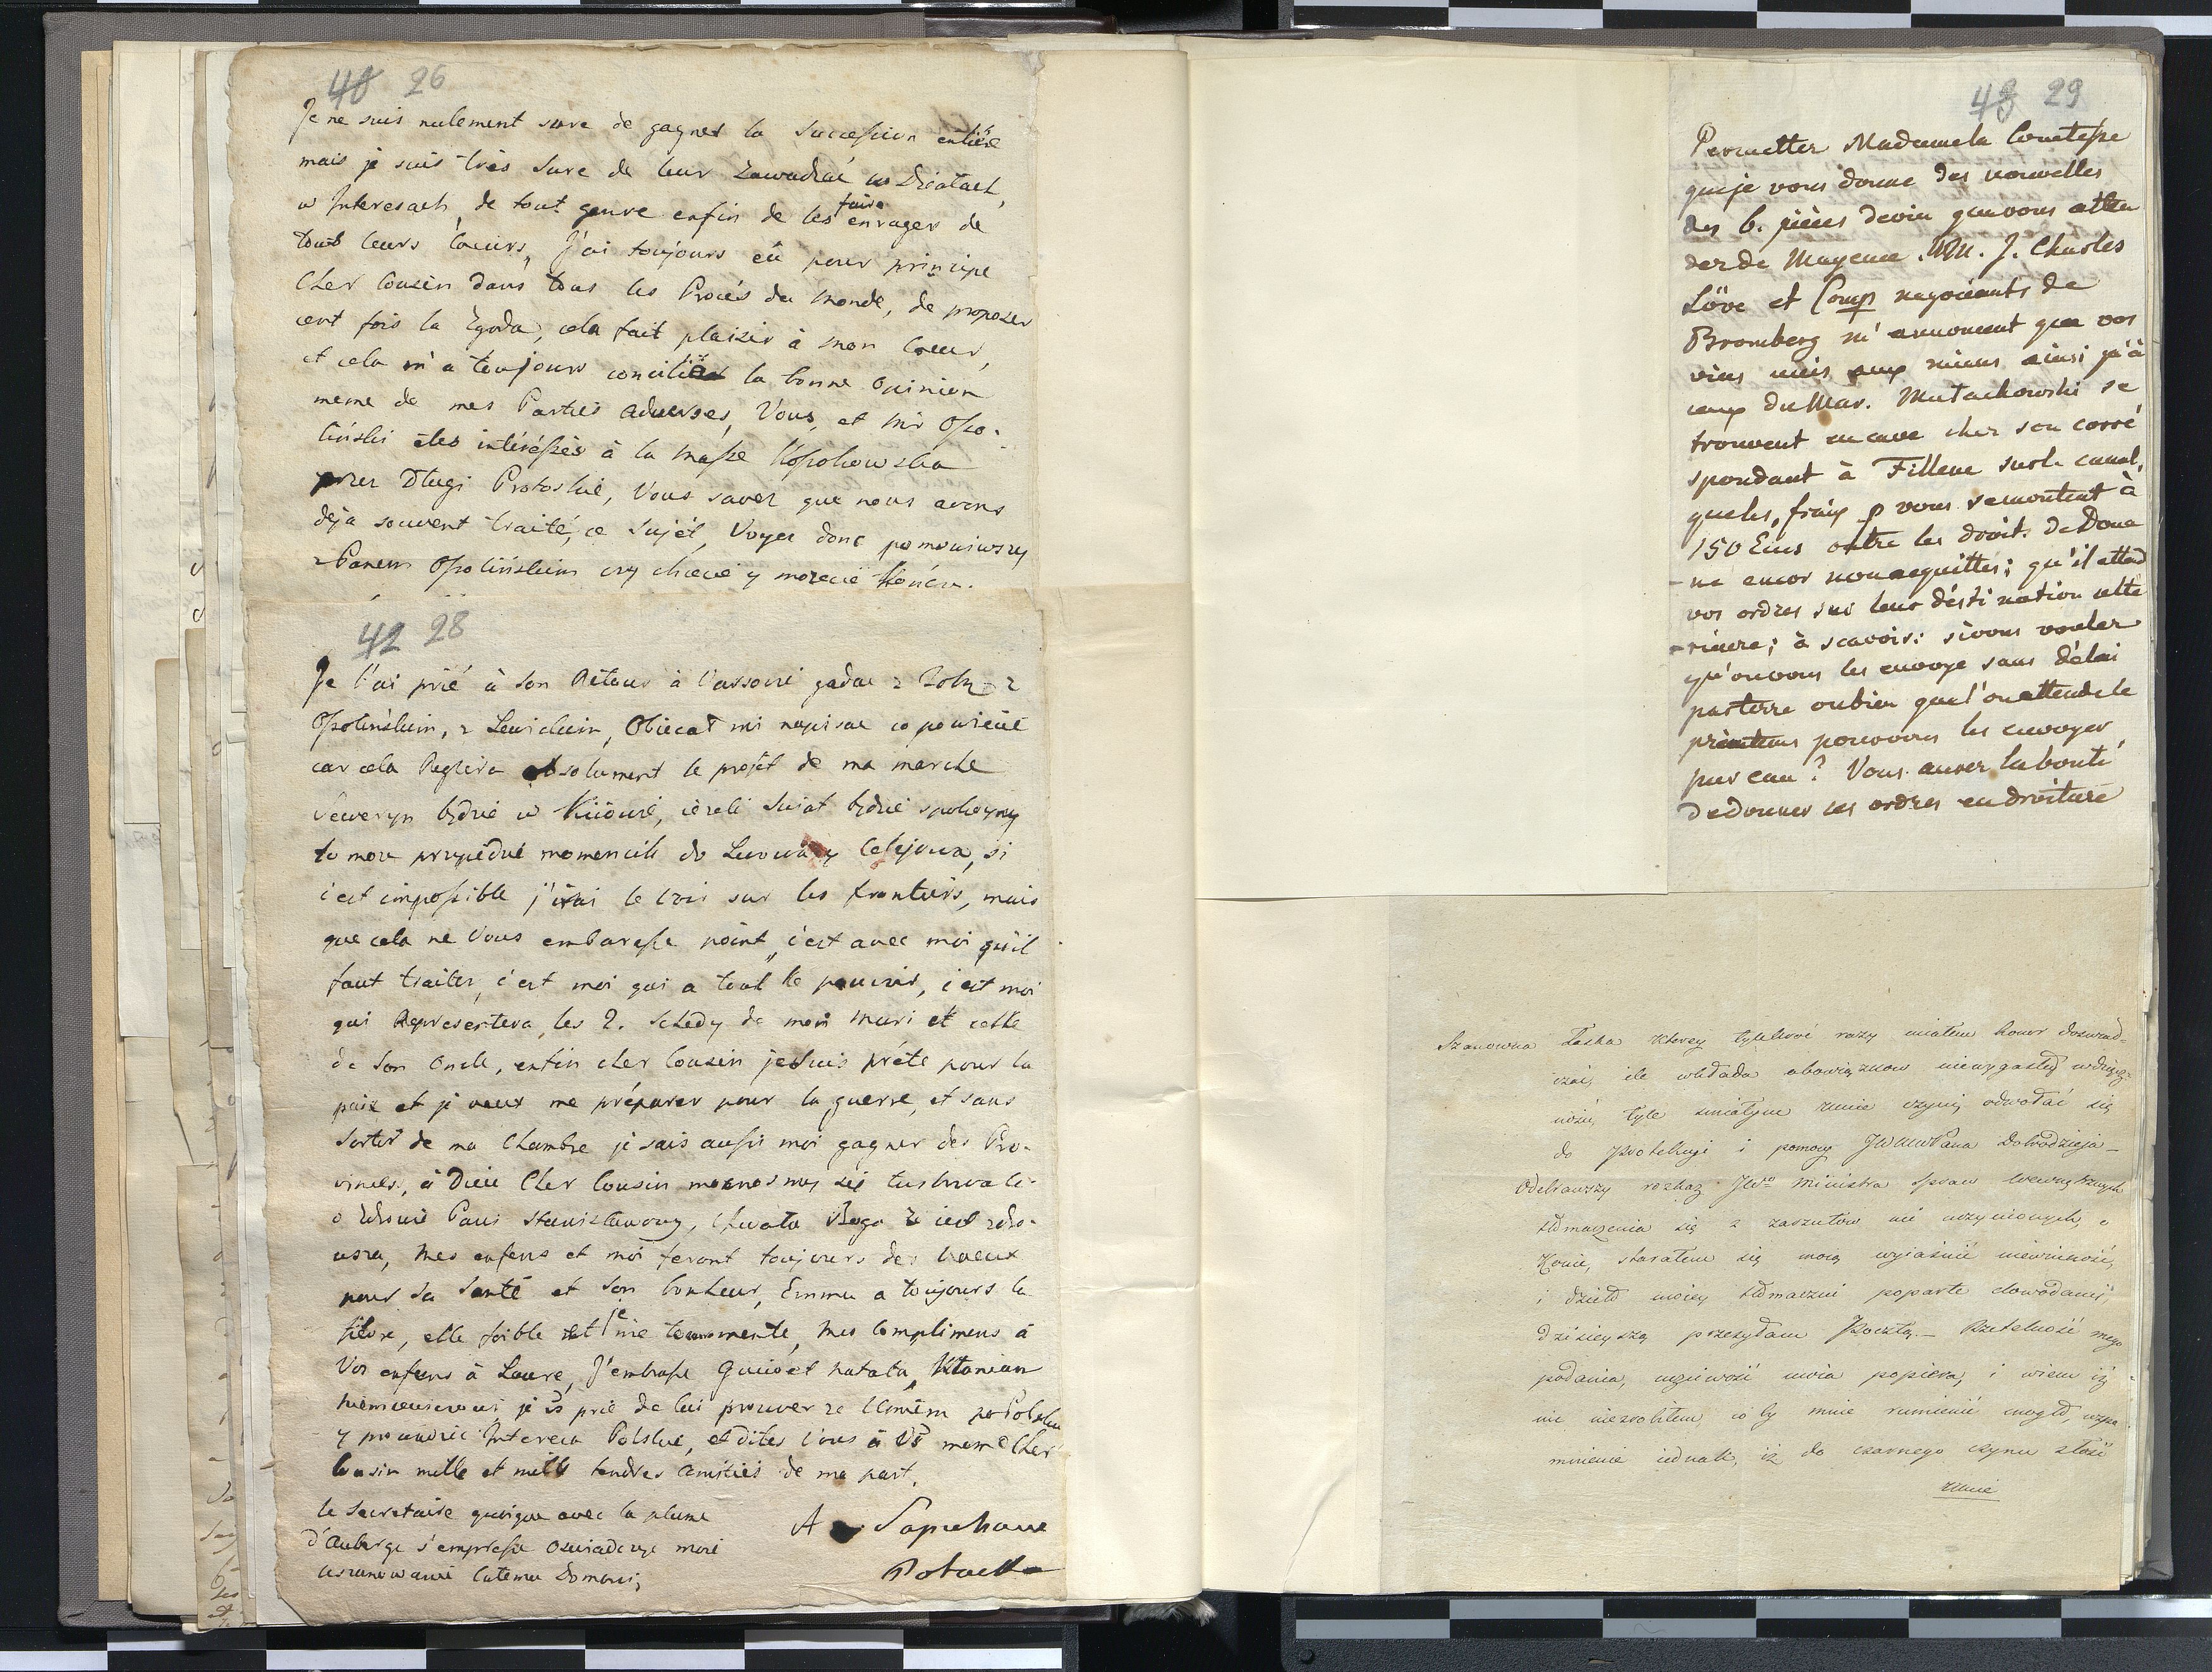 48 26
Je ne suis nulement sure de gagner la Succession entière
mais je suis très sure de leur zawadzać w Działach,
w Interesach, de tout genre enfin de les faire enrager de
tout leurs Coeurs, J'ai toujours eû pour principe
Cher Cousin dans tous les Procés du Monde, de proposer
cent fois la Zgoda, cela fait plaisir à mon Coeur,
et cela m'a toujours concilié la bonne Opinion
meme de mes Parties Adverses, Vous, et Mr Osso-
liński êtes intéréssés à la Masse Kossakowska
przez Długi Protoskie, Vous savez que nous avons
deja souvent traité, ce Sujét, Voyez donc pomowiwszy
z Panem Ossolińskim czy chcecie y mozecie Kończ.
42 28
Je l'ai prié à son Rétour à l'assoirè gadac z
Ossolinskim, z Lewickim, Obiecał mi napisac co powiecie
car cela Reglera absolument le projét de ma marche
Seweryn będzie w Kiiowie, iezeli Swiat będzie spokoyny
to moze przyiedzie momencik do Lwowa y, si
c'est impossible j'irai le voir sur les frontiers, mais
que cela ne Vous embarasse point, c'est avec moi qu'il
faut traiter, c'est moi qui a tout le pouvoir, c'est moi
qui Representera les 2. Schedy de mon Mari et celle
de son Oncle, enfin cher Cousin je suis préte pour la
paix et je veux me préparer pour la guerre, et sans
sortir de ma Chambre je sais aussi moi gagner des Pro-
vinces, à Dieu Cher Cousin
o Zdrowie Pani Stanisławowy, Chwała Boga ze iest zdro-
wsza, Mes enfens et moi feront toujours des voeux
pour sa Santé et son bonheur, Emma a toujours la
fièvre, elle foible et je me tourmente, Mes Complimens à
Vos enfens à Laure, J'embrasse
je Vs prie de lui prouver ze Umiem po Polsku
y prowadzic Interesa Polskie, et dites Vous à Vs meme Cher
Cousin mille et mille tendres Amitiés de ma part.
le Secretaire quoique avec la plume
d'Auberge s'empresse oswiadczyc moie
uszanowanie Całemu Domowi,
A Sapiehane
Potocka
48 29
Permetter Madame la Comtesse
que je vous donne des nouvelles
des 6. pièces de vin que vous atten
dez de Mayence. MM. J. Charles
Löve et Comp negociants de
Bromberg m'annoncent que vos
vins unis aux miens ainsi qu'à
ceux du Mar. Małachowski se
trouvent en cave chez son corré
spondant à Fillene sur le canal,
que les fraix p vous se montent à
150 Ecus outre les droits de Doua
-ne encor non acquittés; qu'il attend
vos ordres sur leur déstination ulte
-rieure; à scavoir: si vous voulez
qu'on vous les envoye sans délai
par terre ou bien que l'on attende le
printems pour vous les envoyer
par eau? Vous aurez la bonté
de donner ces ordres en droiture
Szanowna Łaska Ktorey tylekroć razy miałem honor doswiad-
czać, ile wkłada obowiązkow niewygasłey wdzięcz-
ności, tyle smiałym mnie czyni, odwołać się
do protekcyi i pomocy JWWPana Dobrodzieja_
Odebrawszy rozkaz JWo Ministra Spraw Wewnętrznych
tłómaczenia się z zarzutów mi uczynionych, o
Konie, starałem się moią wyiaśnić niewinność,
i dzieło moiey tłómaczni poparte dowodami,
dzisieyszą przesyłam Pocztą._ Rzetelność mego
podania, uczciwość moia popiera, i wiem iż
nic niezrobiłem, co by mnie rumienić mogło, wspo-
mnienie iednak, iż do czarnego czynu złość
mnie